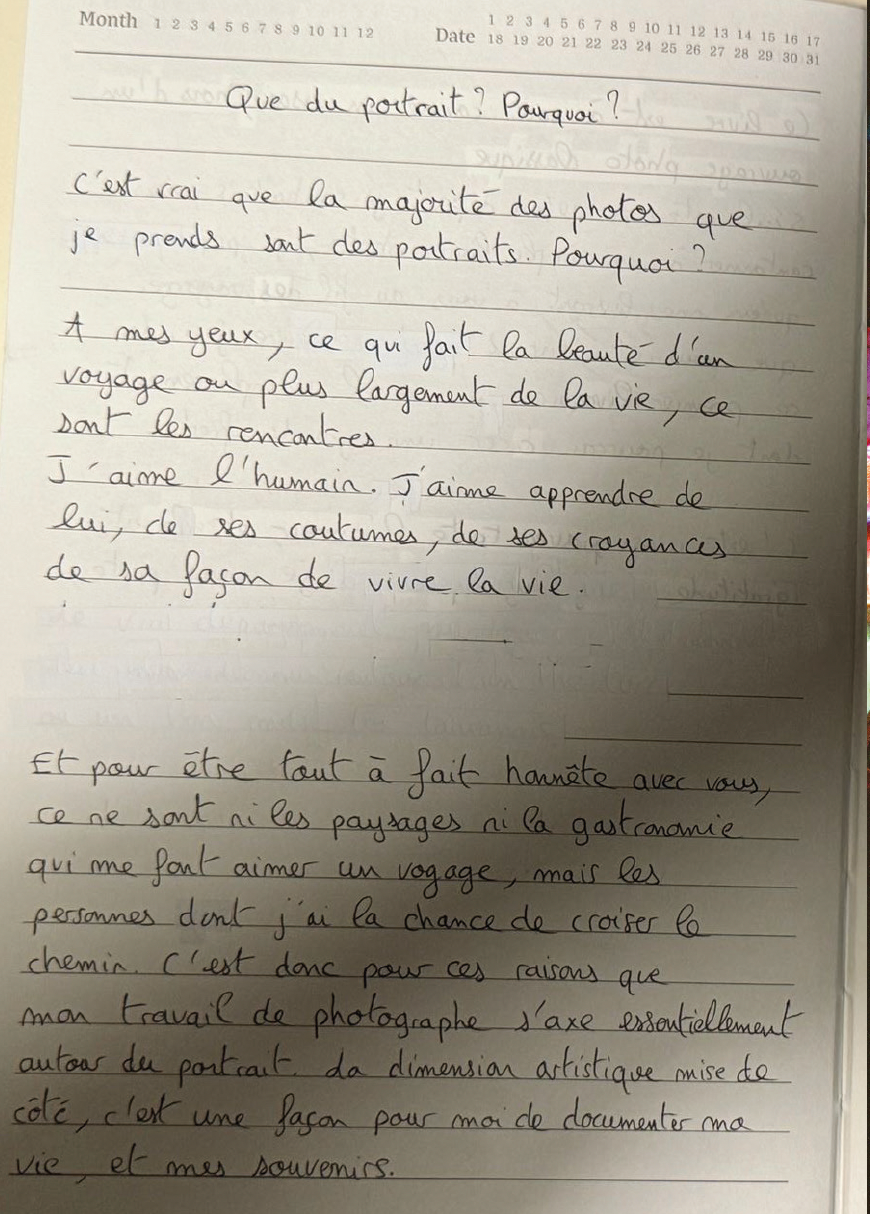 Month 1 2 3 4 5 6 7 8 9 10 11 12
Date 1 2 3 4 5 6 7 8 9 10 11 12 13 14 15 16 17
18 19 20 21 22 23 24 25 26 27 28 29 30 31
Que du portrait ? Pourquoi ?
C'est vrai que la majorité des photos que
je prends sont des portraits. Pourquoi ?
A mes yeux, ce qui fait la beauté d'un
voyage ou plus largement de la vie, ce
sont les rencontres.
J'aime l'humain. J'aime apprendre de
lui, de ses coutumes, de ses croyances
de sa façon de vivre la vie.
Et pour être tout à fait honnête avec vous,
ce ne sont ni les paysages ni la gastronomie
qui me font aimer un voyage, mais les
personnes dont j'ai la chance de croiser le
chemin. C'est donc pour ces raisons que
mon travail de photographe s'axe essentiellement
autour du portrait. La dimension artistique mise de
côté, c'est une façon pour moi de documenter ma
vie, et mes souvenirs.